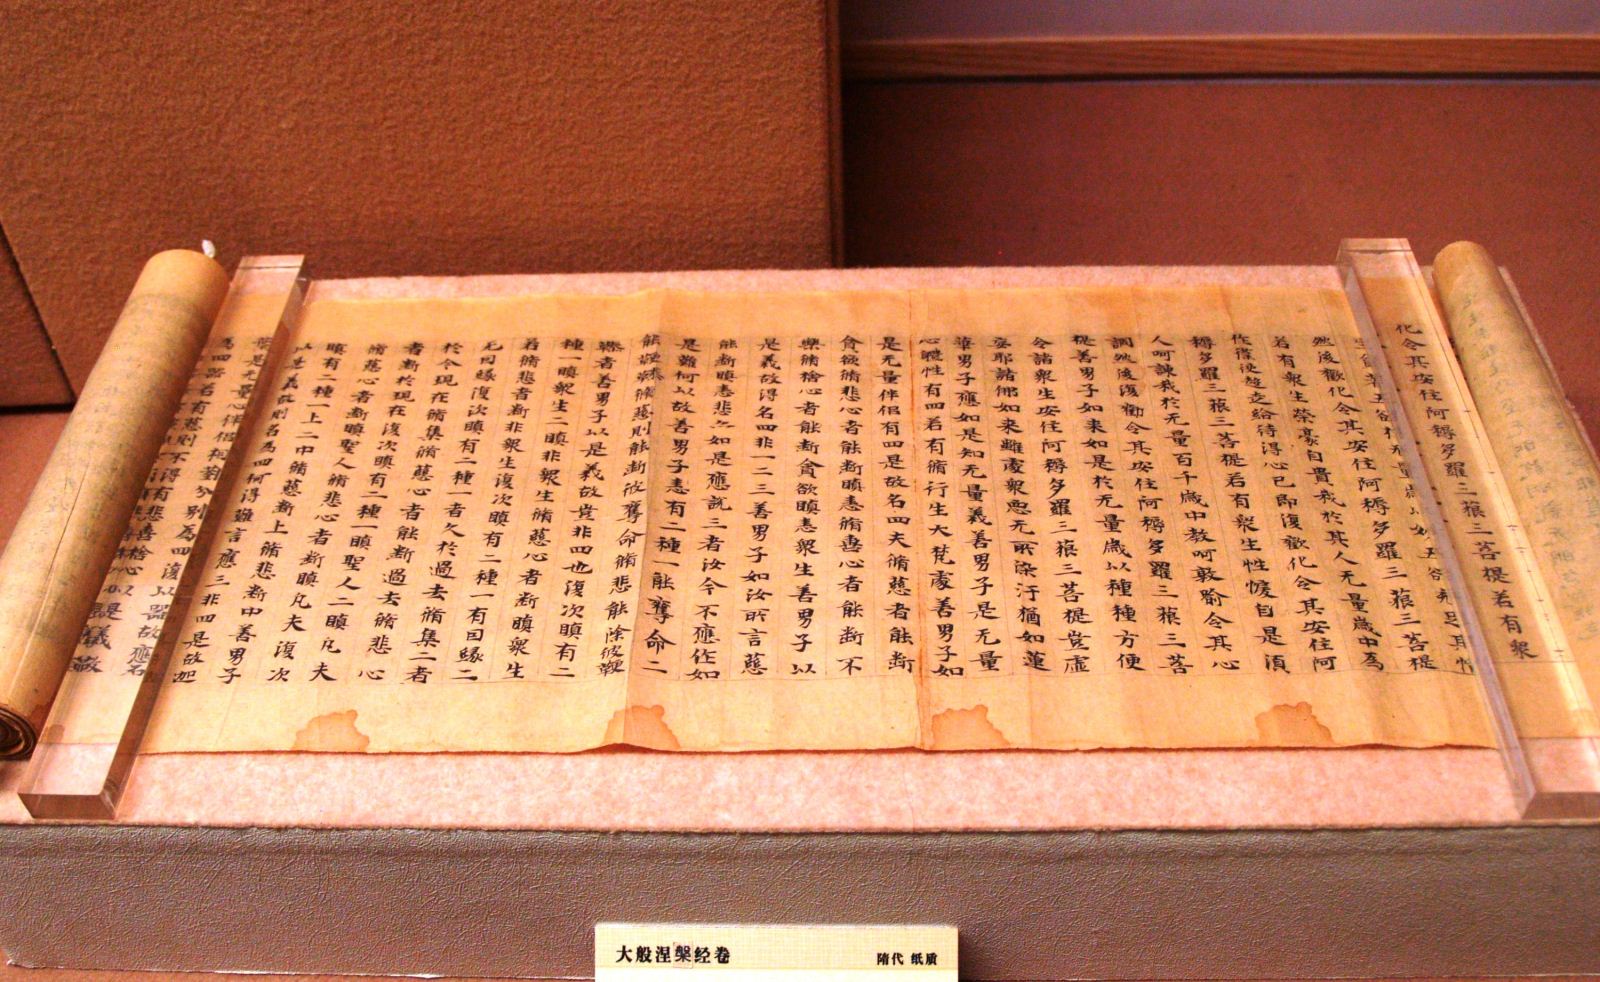 化令其安住阿耨多羅三藐三菩提若有衆
五欲
然後歡化令其安住阿耨多羅三藐三菩提
若有衆生榮豪自貴我於其人无量歲中為
作僕使趍走給侍得心已即復歡化令其安住阿
耨多羅三藐三菩提若有衆生性悷自是須
人呵諫我於无量百千歲中教呵敦喻令其心
調然後復勸令其安住阿耨多羅三藐三菩
提善男子如来如是於无量歲以種種方便
令諸衆生安住阿耨多羅三藐三菩提豈虛
妄耶諸佛如来雖處衆惡无所染汙猶如蓮
華男子應如是知无量義善男子是无量
心體性有四若有脩行生大梵處善男子如
是无量伴侣有四是故名四夫脩慈者能斷
貪欲脩悲心者能斷瞋恚脩喜心者能斷不
樂脩捨心者能斷貪欲瞋恚衆生善男子以
是義故得名四非一二三善男子如汝所言慈
能斷瞋恚悲亦如是應說三者汝今不應作如
是難何以故善男子恚有二種一能奪命二
能鞭撻脩慈則能斷彼奪命脩悲能除彼鞭
撻者善男子以是義故豈非四也復次瞋有二
種一瞋衆生二瞋非衆生脩慈心者斷瞋衆生
若脩悲者斷非衆生復次瞋有二種一有因緣二
无因緣復次瞋有二種一者久於過去脩集二者
於今現在脩集脩慈心者能斷過去脩悲心
者斷於現在復次瞋有二種一瞋聖人二瞋凡夫
脩慈心者斷瞋聖人脩悲心者斷瞋凡夫復次
瞋有二種一上二中脩慈斷上脩悲斷中善男子
以是義故則名為四何得難言應三非四是故迦
葉是无量心伴侣相對分別為四復以器故應名
為四器若有慈則不得有悲喜捨心以是義故
大般涅槃经卷
隋代 纸质